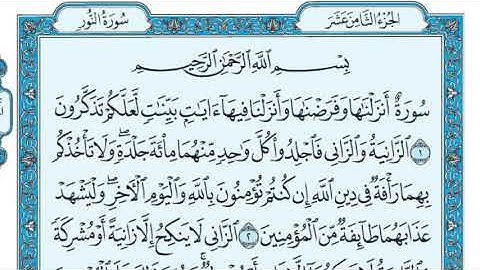 سُورَةُ النُّور
الجُزْءُ الثَّامِنَ عَشَرَ
بِسْمِ اللَّهِ الرَّحْمَٰنِ الرَّحِيمِ
سُورَةٌ أَنزَلْنَٰهَا وَفَرَضْنَٰهَا وَأَنزَلْنَا فِيهَآ ءَايَٰتٍۭ بَيِّنَٰتٍ لَّعَلَّكُمْ تَذَكَّرُونَ
١ الزَّانِيَةُ وَالزَّانِى فَٱجْلِدُوا۟ كُلَّ وَٰحِدٍ مِّنْهُمَا مِا۟ئَةَ جَلْدَةٍ ۖ وَلَا تَأْخُذْكُم
بِهِمَا رَأْفَةٌ فِى دِينِ ٱللَّهِ إِن كُنتُمْ تُؤْمِنُونَ بِٱللَّهِ وَٱلْيَوْمِ ٱلْءَاخِرِ ۖ وَلْيَشْهَدْ
عَذَابَهُمَا طَآئِفَةٌ مِّنَ ٱلْمُؤْمِنِينَ ٢ ٱلزَّانِى لَا يَنكِحُ إِلَّا زَانِيَةً أَوْ مُشْرِكَةً